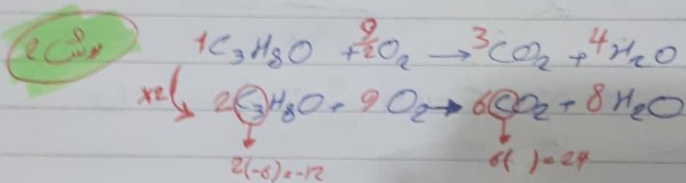 1C₃H₈O + 9/2 O₂ → 3CO₂ + 4H₂O
×2 2C₃H₈O + 9O₂ → 6CO₂ + 8H₂O
2(-6)=-12 6( )=24